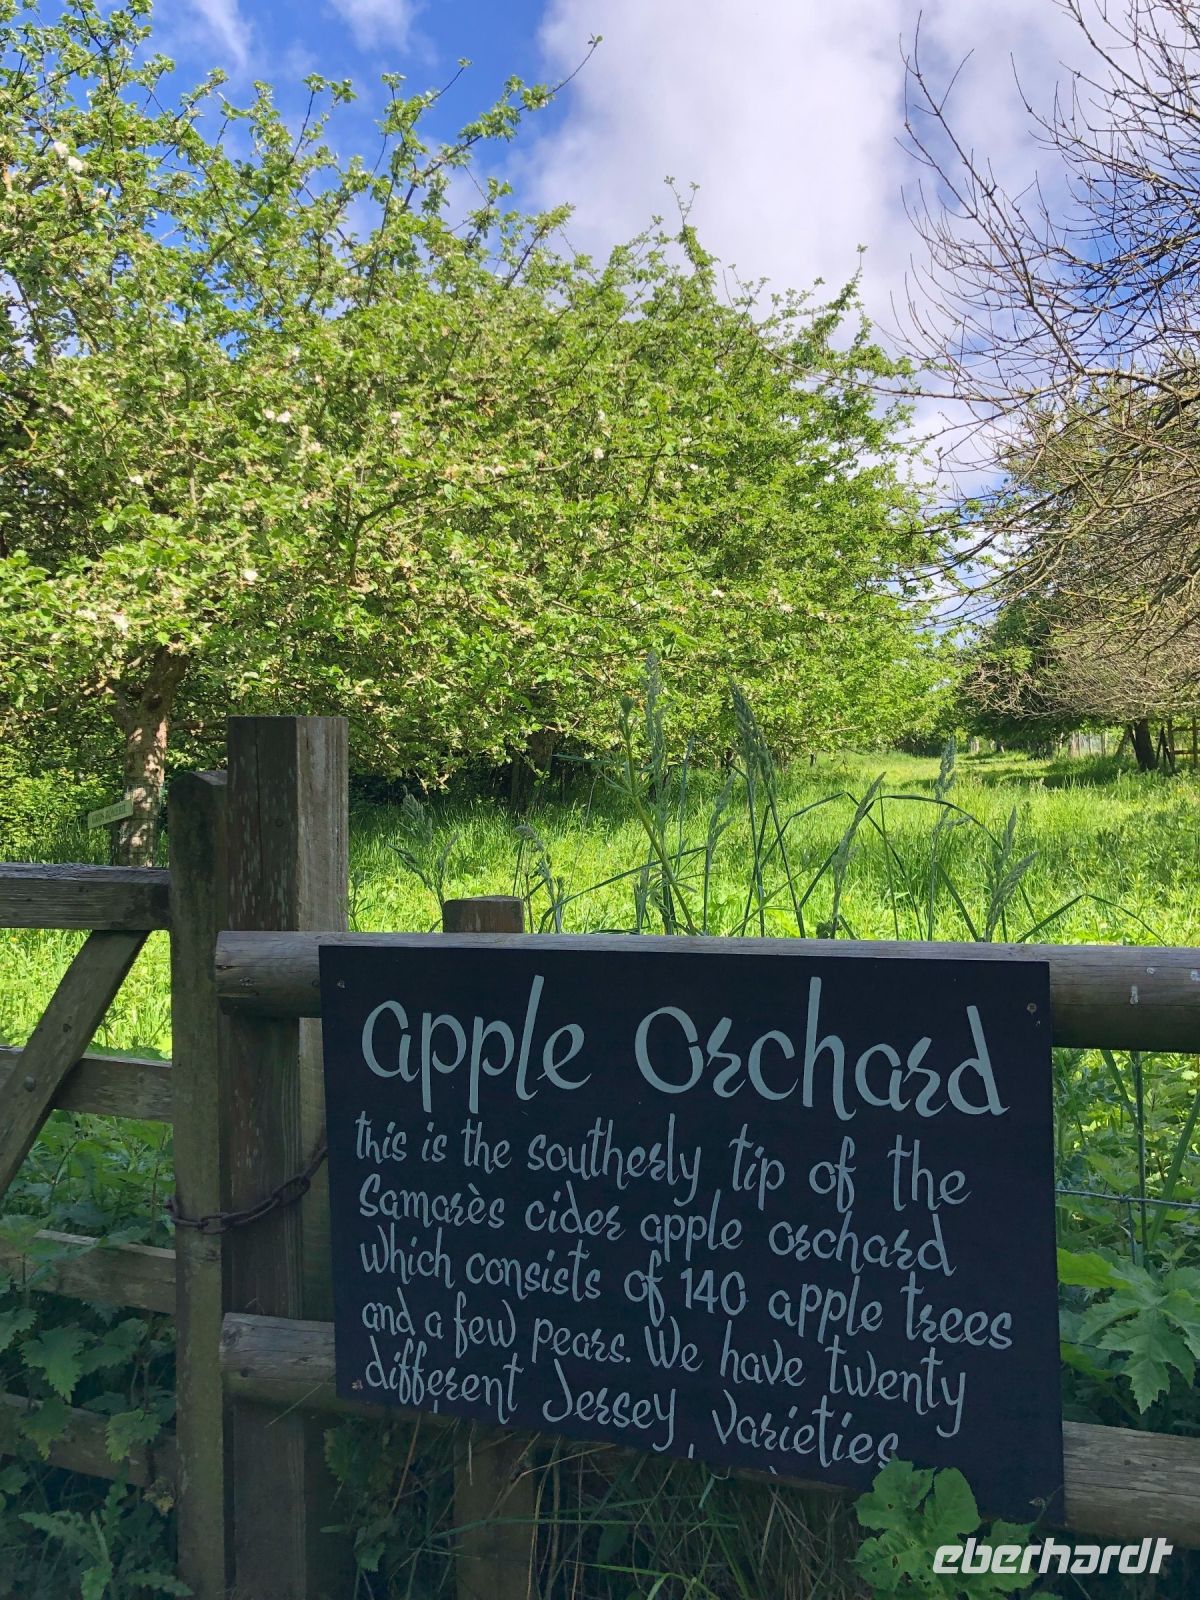 apple orchard
this is the southerly tip of the
Samarès cider apple orchard
which consists of 140 apple trees
and a few pears. We have twenty
different Jersey varieties
eberhardt